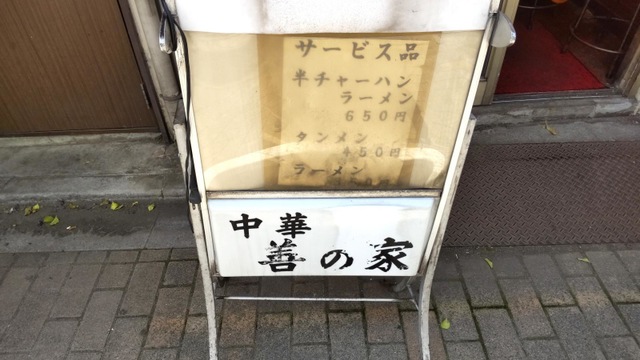 サービス品
半チャーハン
ラーメン
650円
タンメン
450円
ラーメン
中華
善の家